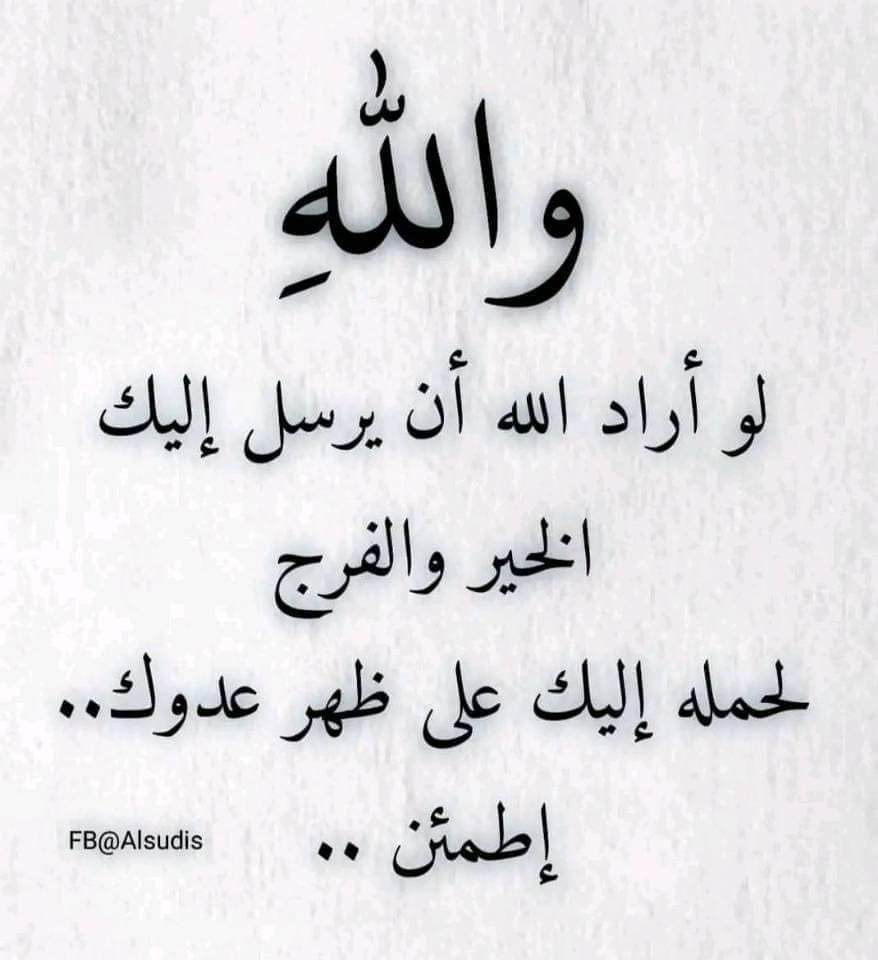 واللهِ
لو أراد الله أن يرسل إليك
الخير والفرج
لحمله إليك على ظهر عدوك..
إطمئن ..
FB@Alsudis